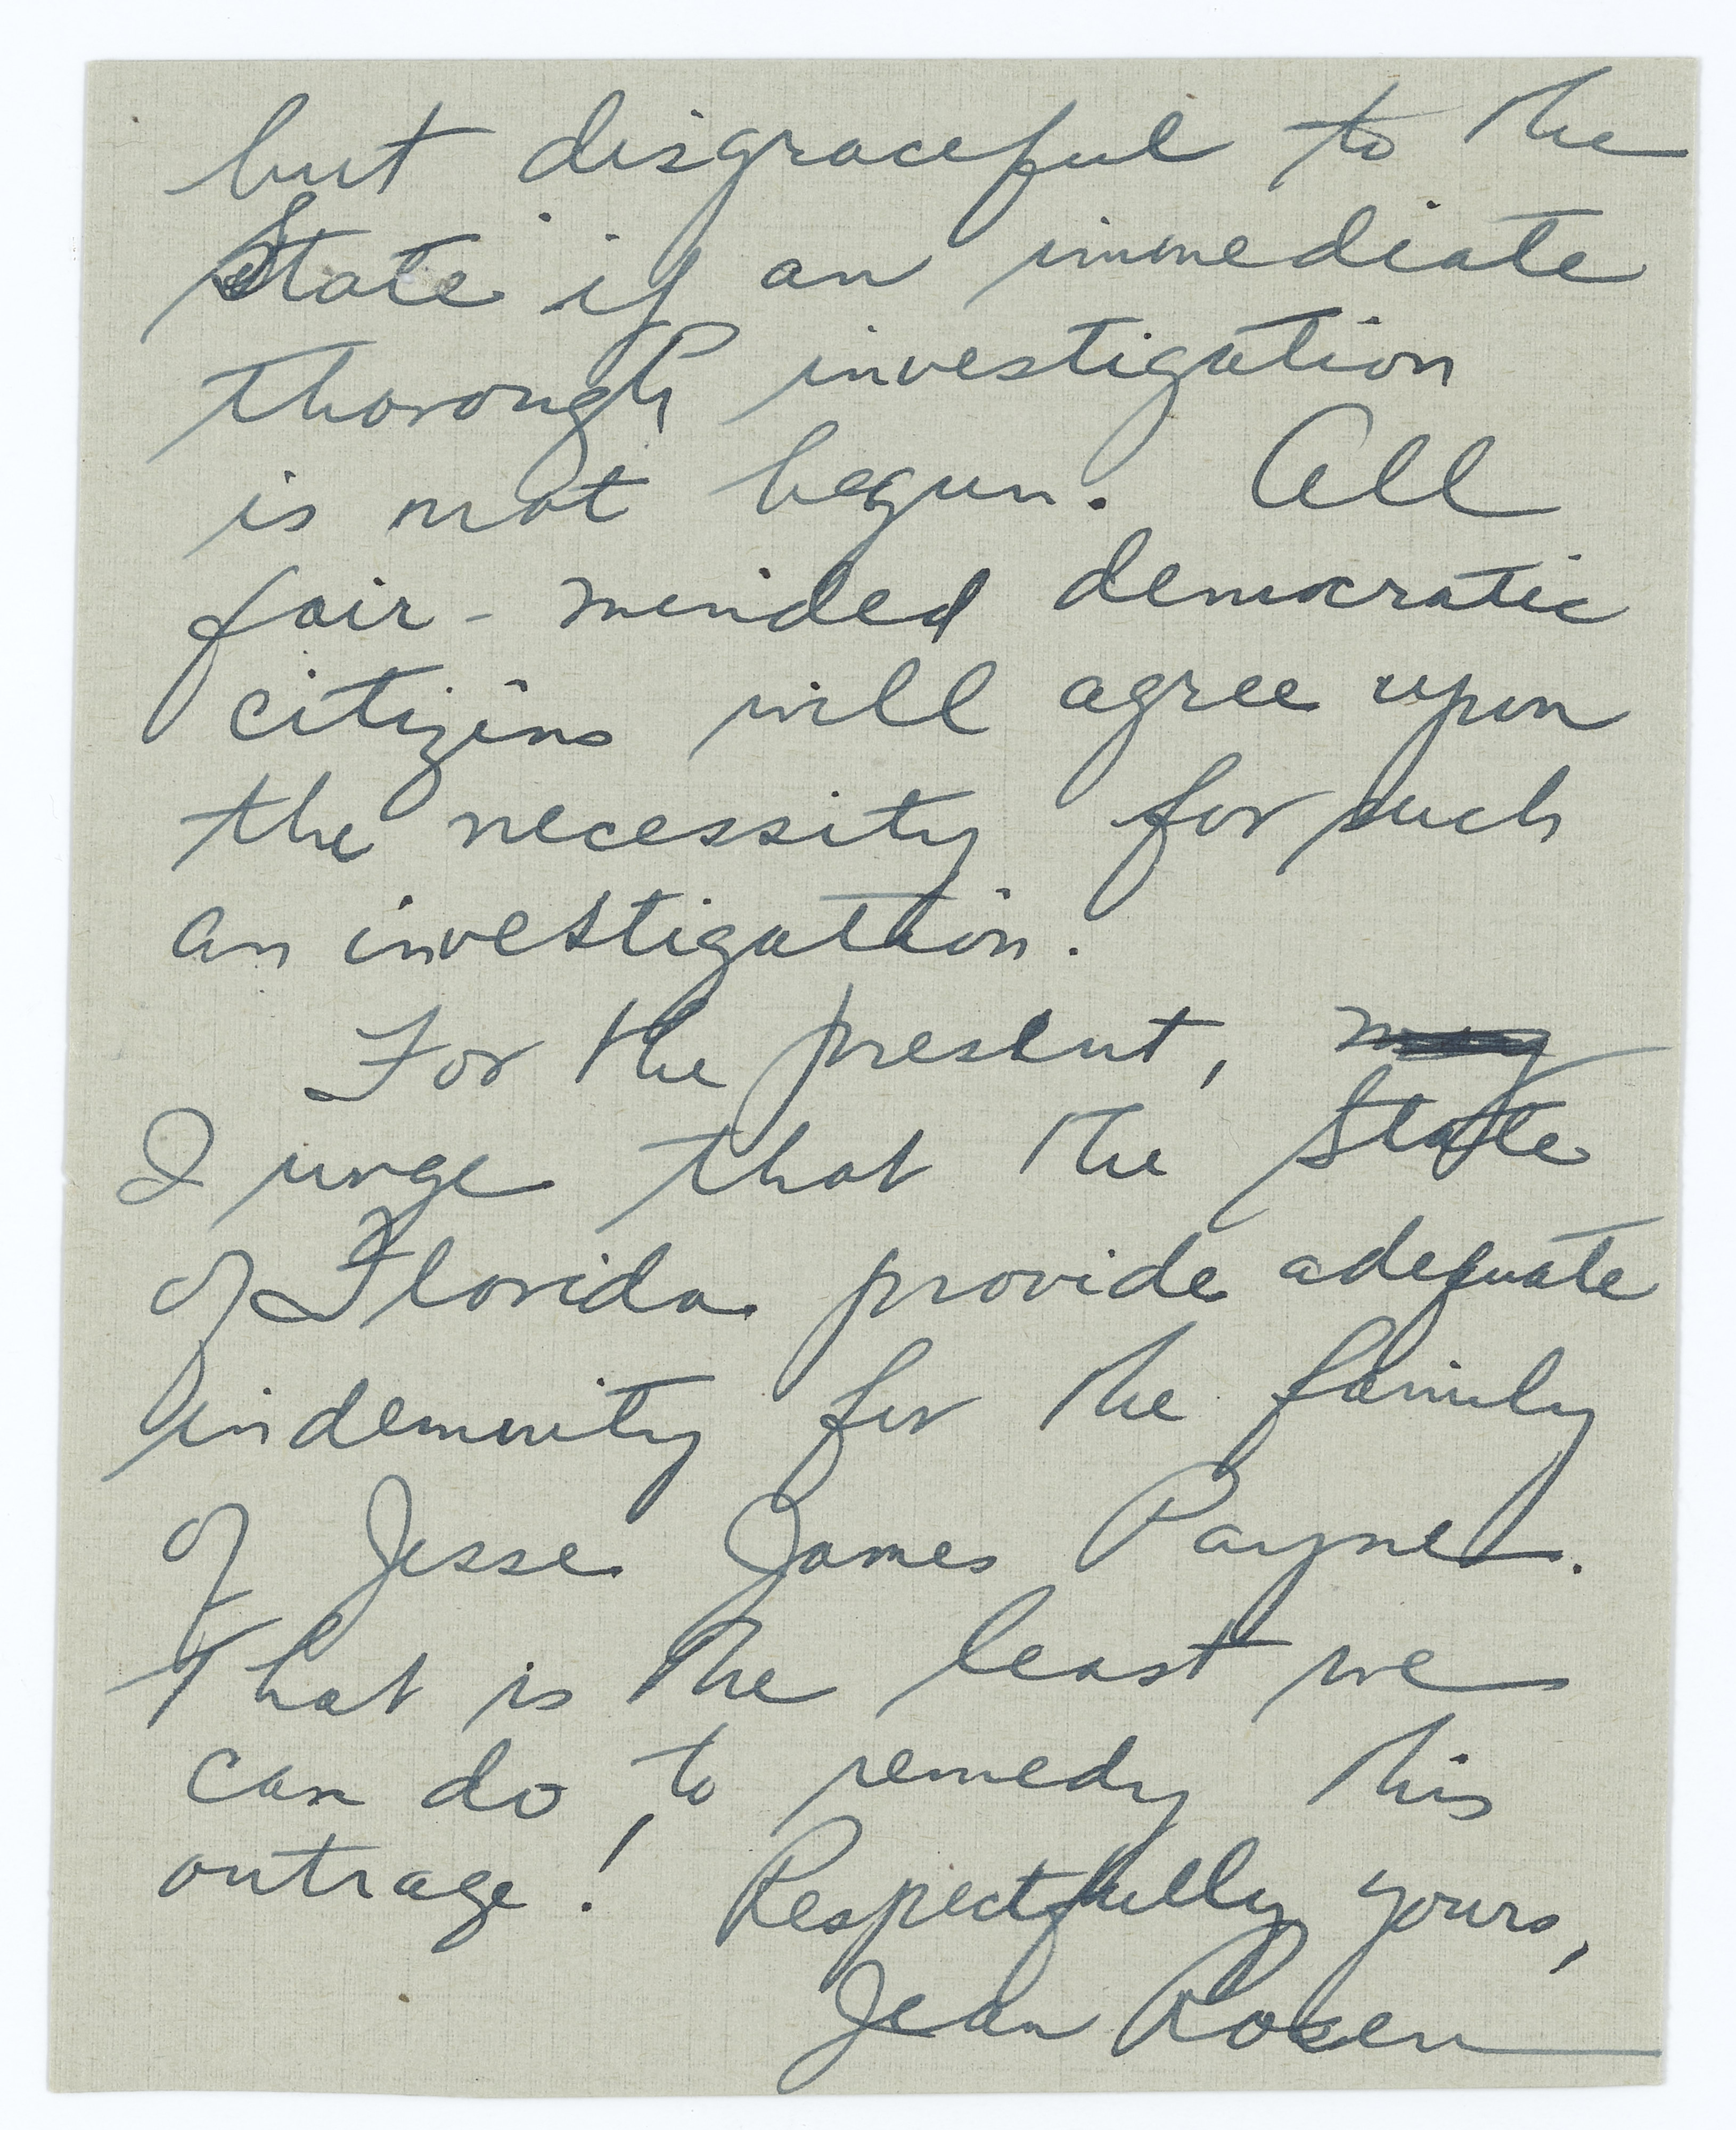 but disgraceful to the
State if an immediate
thorough investigation
is not begun. All
fair-minded democratic
citizens will agree upon
the necessity for such
an investigation.
For the present, may
I urge that the State
of Florida provide adequate
indemnity for the family
of Jesse James Payne.
That is the least we
can do, to remedy this
outrage! Respectfully yours,
Jean Rosen